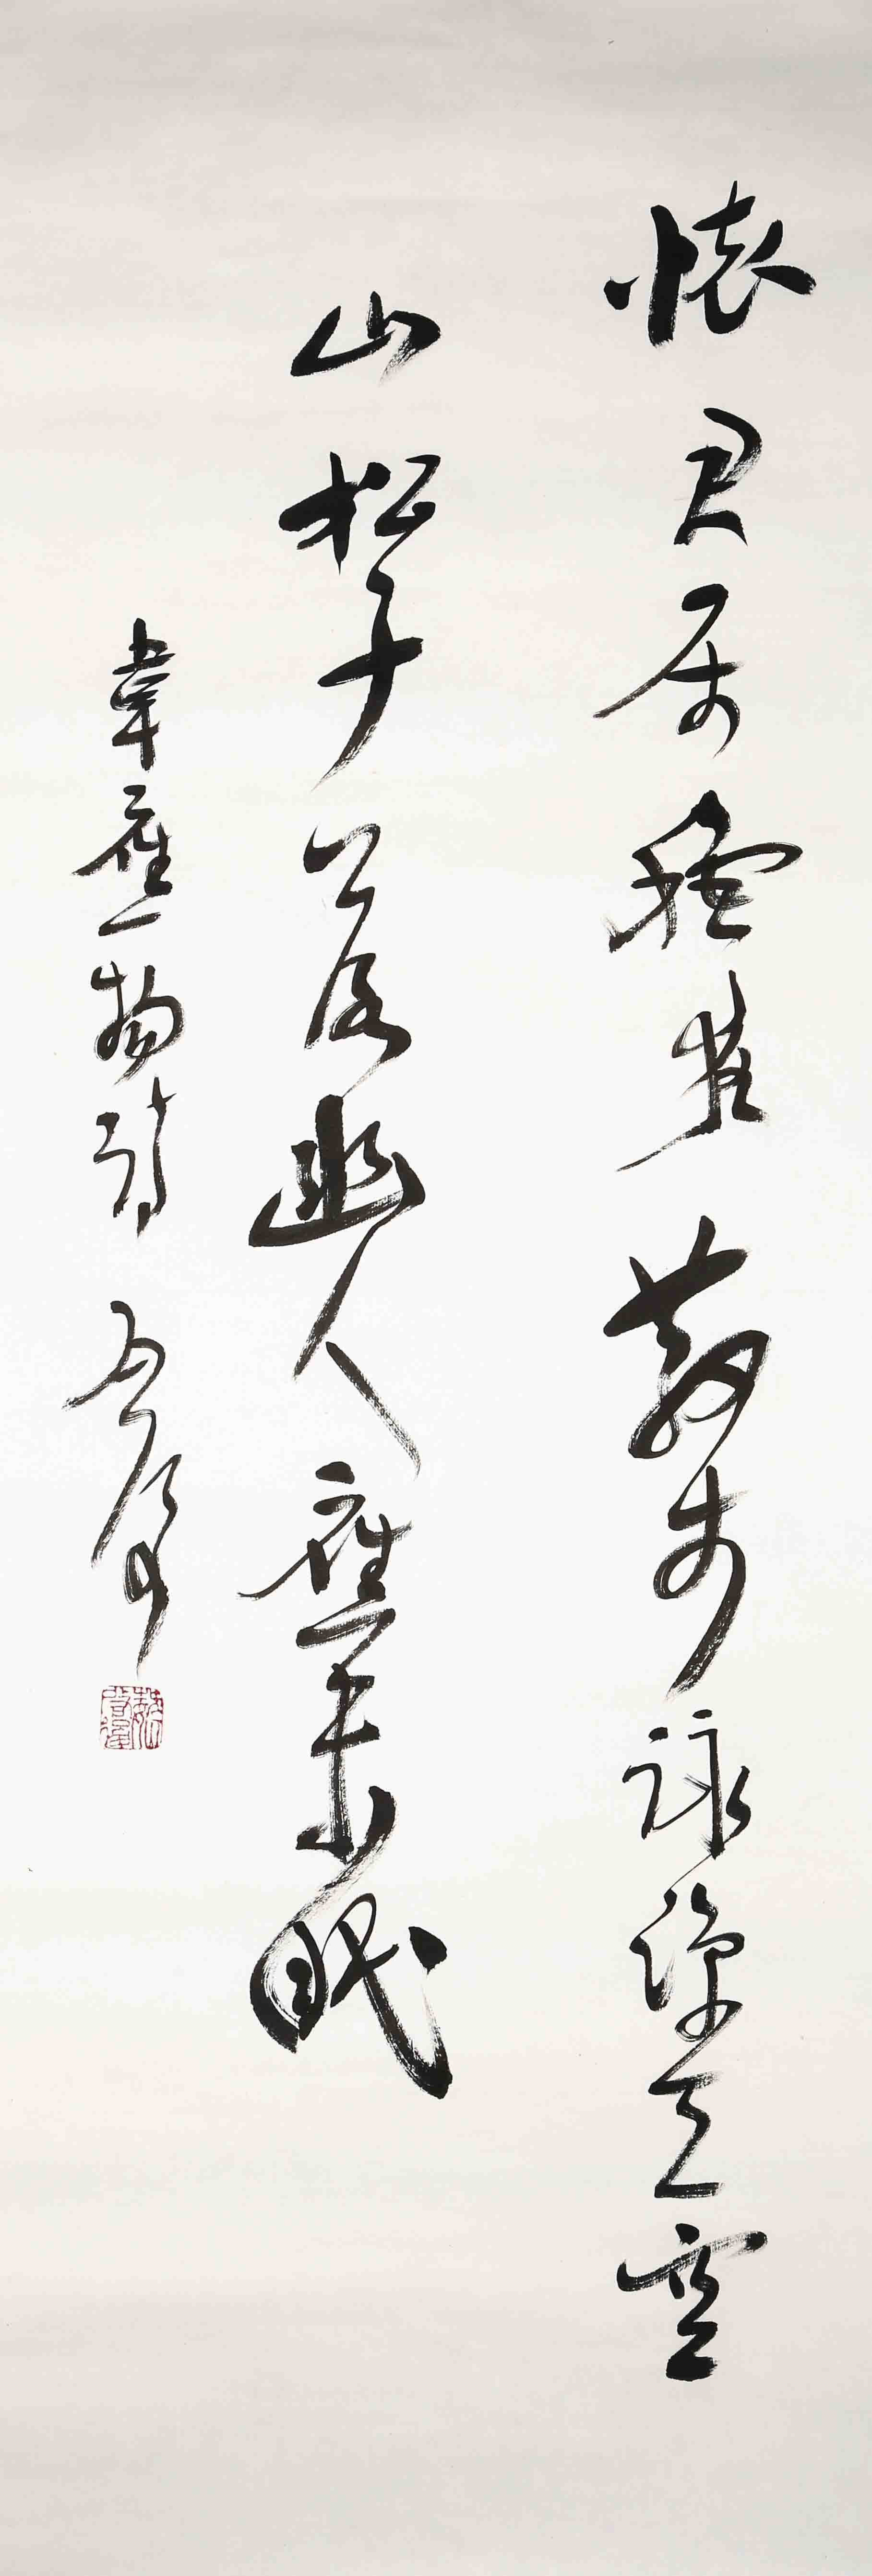 懷君屬秋夜散步詠涼天空
山松子落幽人應未眠
韋應物詩 啟後